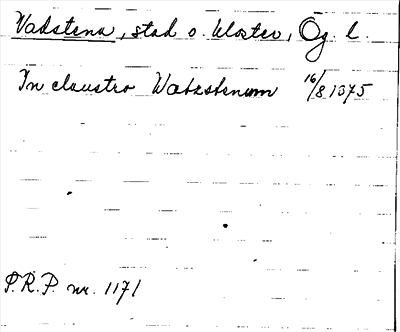 Vadstena, stad o. kloster, Ög. l.
In claustro Watzstenum 16/8 1375
P.R.P. nr. 1171